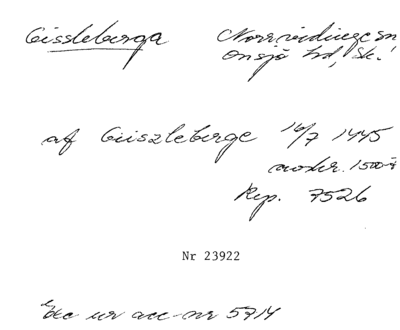 Gissleberga Norrvidinge sn
Onsjö hd, Sk.
af Gïiszleberge 16/7 1445
avskr. 1500-t
Rep. 7526
Nr 23922
Exc ur acc-nr 5714